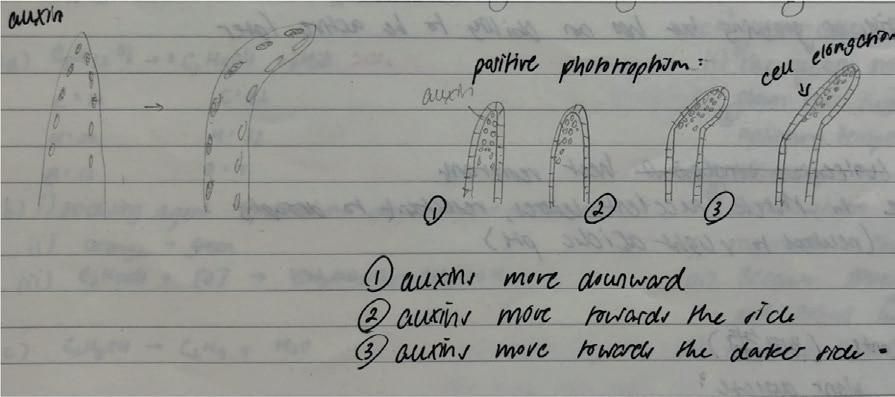 auxin
positive phototrophism:
auxin
cell elongation
1
2
3
1 auxins move downward
2 auxins move towards the side
3 auxins move towards the darker side.